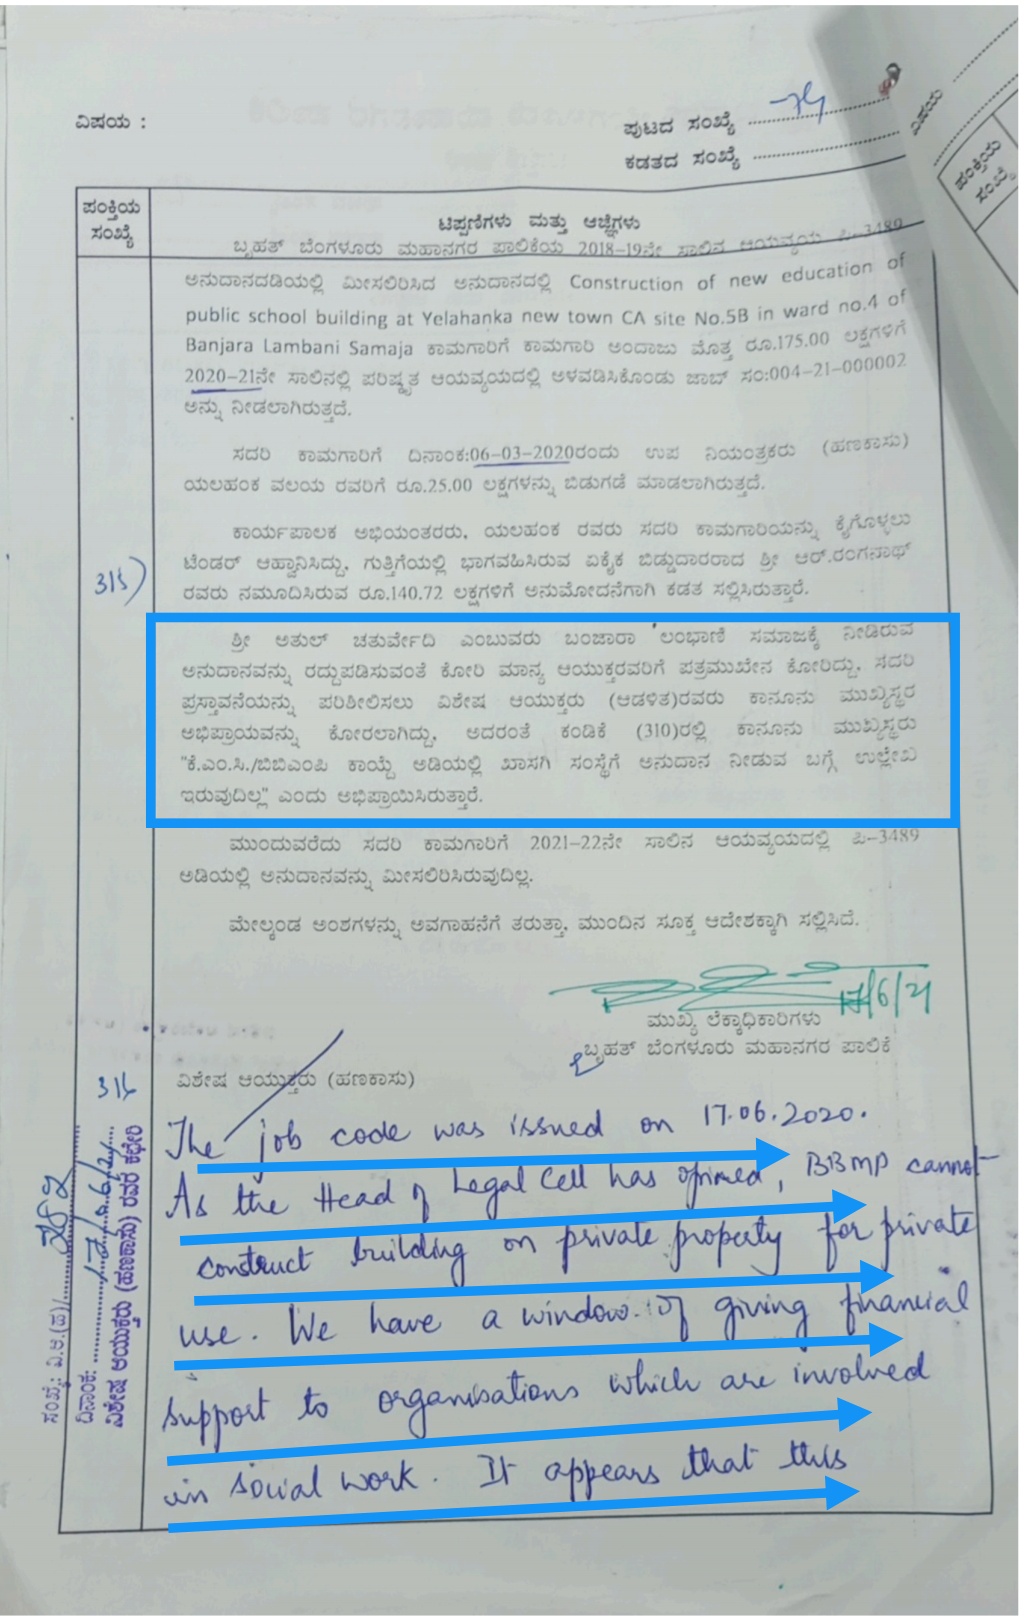 ವಿಷಯ :
ಪುಟದ ಸಂಖ್ಯೆ
ಕಡತದ ಸಂಖ್ಯೆ
ವಿಷಯ
ಪಂಕ್ತಿಯ
ಸಂಖ್ಯೆ
ಪಂಕ್ತಿಯ
ಸಂಖ್ಯೆ
ಟಿಪ್ಪಣಿಗಳು ಮತ್ತು ಆಜ್ಞೆಗಳು
ಬೃಹತ್ ಬೆಂಗಳೂರು ಮಹಾನಗರ ಪಾಲಿಕೆಯ 2018-19ನೇ ಸಾಲಿನ ಆಯವ್ಯಯ ಪಿ-3489
ಅನುದಾನದಡಿಯಲ್ಲಿ ಮೀಸಲಿರಿಸಿದ ಅನುದಾನದಲ್ಲಿ Construction of new education of
public school building at Yelahanka new town CA site No.5B in ward no.4 of
Banjara Lambani Samaja ಕಾಮಗಾರಿಗೆ ಕಾಮಗಾರಿ ಅಂದಾಜು ಮೊತ್ತ ರೂ.175.00 ಲಕ್ಷಗಳಿಗೆ
2020-21ನೇ ಸಾಲಿನಲ್ಲಿ ಪರಿಷ್ಕೃತ ಆಯವ್ಯಯದಲ್ಲಿ ಅಳವಡಿಸಿಕೊಂಡು ಜಾಬ್ ಸಂ:004-21-000002
ಅನ್ನು ನೀಡಲಾಗಿರುತ್ತದೆ.
ಸದರಿ ಕಾಮಗಾರಿಗೆ ದಿನಾಂಕ:06-03-2020ರಂದು ಉಪ ನಿಯಂತ್ರಕರು (ಹಣಕಾಸು)
ಯಲಹಂಕ ವಲಯ ರವರಿಗೆ ರೂ.25.00 ಲಕ್ಷಗಳನ್ನು ಬಿಡುಗಡೆ ಮಾಡಲಾಗಿರುತ್ತದೆ.
ಕಾರ್ಯಪಾಲಕ ಅಭಿಯಂತರರು, ಯಲಹಂಕ ರವರು ಸದರಿ ಕಾಮಗಾರಿಯನ್ನು ಕೈಗೊಳ್ಳಲು
315)
ಟೆಂಡರ್ ಆಹ್ವಾನಿಸಿದ್ದು, ಗುತ್ತಿಗೆಯಲ್ಲಿ ಭಾಗವಹಿಸಿರುವ ಏಕೈಕ ಬಿಡ್ಡುದಾರರಾದ ಶ್ರೀ ಆರ್.ರಂಗನಾಥ್
ರವರು ನಮೂದಿಸಿರುವ ರೂ.140.72 ಲಕ್ಷಗಳಿಗೆ ಅನುಮೋದನೆಗಾಗಿ ಕಡತ ಸಲ್ಲಿಸಿರುತ್ತಾರೆ.
ಶ್ರೀ ಅತುಲ್ ಚತುರ್ವೇದಿ ಎಂಬುವರು ಬಂಜಾರಾ ಲಂಭಾಣಿ ಸಮಾಜಕ್ಕೆ ನೀಡಿರುವ
ಅನುದಾನವನ್ನು ರದ್ದುಪಡಿಸುವಂತೆ ಕೋರಿ ಮಾನ್ಯ ಆಯುಕ್ತರವರಿಗೆ ಪತ್ರಮುಖೇನ ಕೋರಿದ್ದು, ಸದರಿ
ಪ್ರಸ್ತಾವನೆಯನ್ನು ಪರಿಶೀಲಿಸಲು ವಿಶೇಷ ಆಯುಕ್ತರು (ಆಡಳಿತ)ರವರು ಕಾನೂನು ಮುಖ್ಯಸ್ಥರ
ಅಭಿಪ್ರಾಯವನ್ನು ಕೋರಲಾಗಿದ್ದು, ಅದರಂತೆ ಕಂಡಿಕೆ (310)ರಲ್ಲಿ ಕಾನೂನು ಮುಖ್ಯಸ್ಥರು
"ಕೆ.ಎಂ.ಸಿ./ಬಿಬಿಎಂಪಿ ಕಾಯ್ದೆ ಅಡಿಯಲ್ಲಿ ಖಾಸಗಿ ಸಂಸ್ಥೆಗೆ ಅನುದಾನ ನೀಡುವ ಬಗ್ಗೆ ಉಲ್ಲೇಖ
ಇರುವುದಿಲ್ಲ" ಎಂದು ಅಭಿಪ್ರಾಯಿಸಿರುತ್ತಾರೆ.
ಮುಂದುವರೆದು ಸದರಿ ಕಾಮಗಾರಿಗೆ 2021-22ನೇ ಸಾಲಿನ ಆಯವ್ಯಯದಲ್ಲಿ ಪಿ-3489
ಅಡಿಯಲ್ಲಿ ಅನುದಾನವನ್ನು ಮೀಸಲಿರಿಸಿರುವುದಿಲ್ಲ.
ಮೇಲ್ಕಂಡ ಅಂಶಗಳನ್ನು ಅವಗಾಹನೆಗೆ ತರುತ್ತಾ, ಮುಂದಿನ ಸೂಕ್ತ ಆದೇಶಕ್ಕಾಗಿ ಸಲ್ಲಿಸಿದೆ.
17/6/21
ಮುಖ್ಯ ಲೆಕ್ಕಾಧಿಕಾರಿಗಳು
ಬೃಹತ್ ಬೆಂಗಳೂರು ಮಹಾನಗರ ಪಾಲಿಕೆ
ವಿಶೇಷ ಆಯುಕ್ತರು (ಹಣಕಾಸು)
316
The job code was issued on 17.06.2020.
As the Head of Legal Cell has opined, BBMP cannot
construct building on private property for private
use. We have a window of giving financial
support to organisations which are involved
in social work. It appears that this
ಸಂಖ್ಯೆ: ವಿ.ಆ.(ಹ)/
ದಿನಾಂಕ:
ವಿಶೇಷ ಆಯುಕ್ತರು (ಹಣಕಾಸು) ರವರ ಕಛೇರಿ